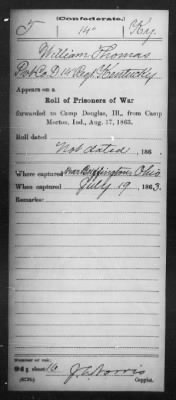 (Confederate.)
T 14" Ky.
William Thomas
Pvt Co. D. 14 Regt Kentucky
Appears on a
Roll of Prisoners of War
forwarded to Camp Douglas, Ill., from Camp
Morton, Ind., Aug. 17, 1863.
Roll dated
Not dated, 186 .
Where captured Near Buffington, Ohio
When captured July 19, 1863.
Remarks:
Number of roll:
sheet 16 J. C. Norris
Copyist.